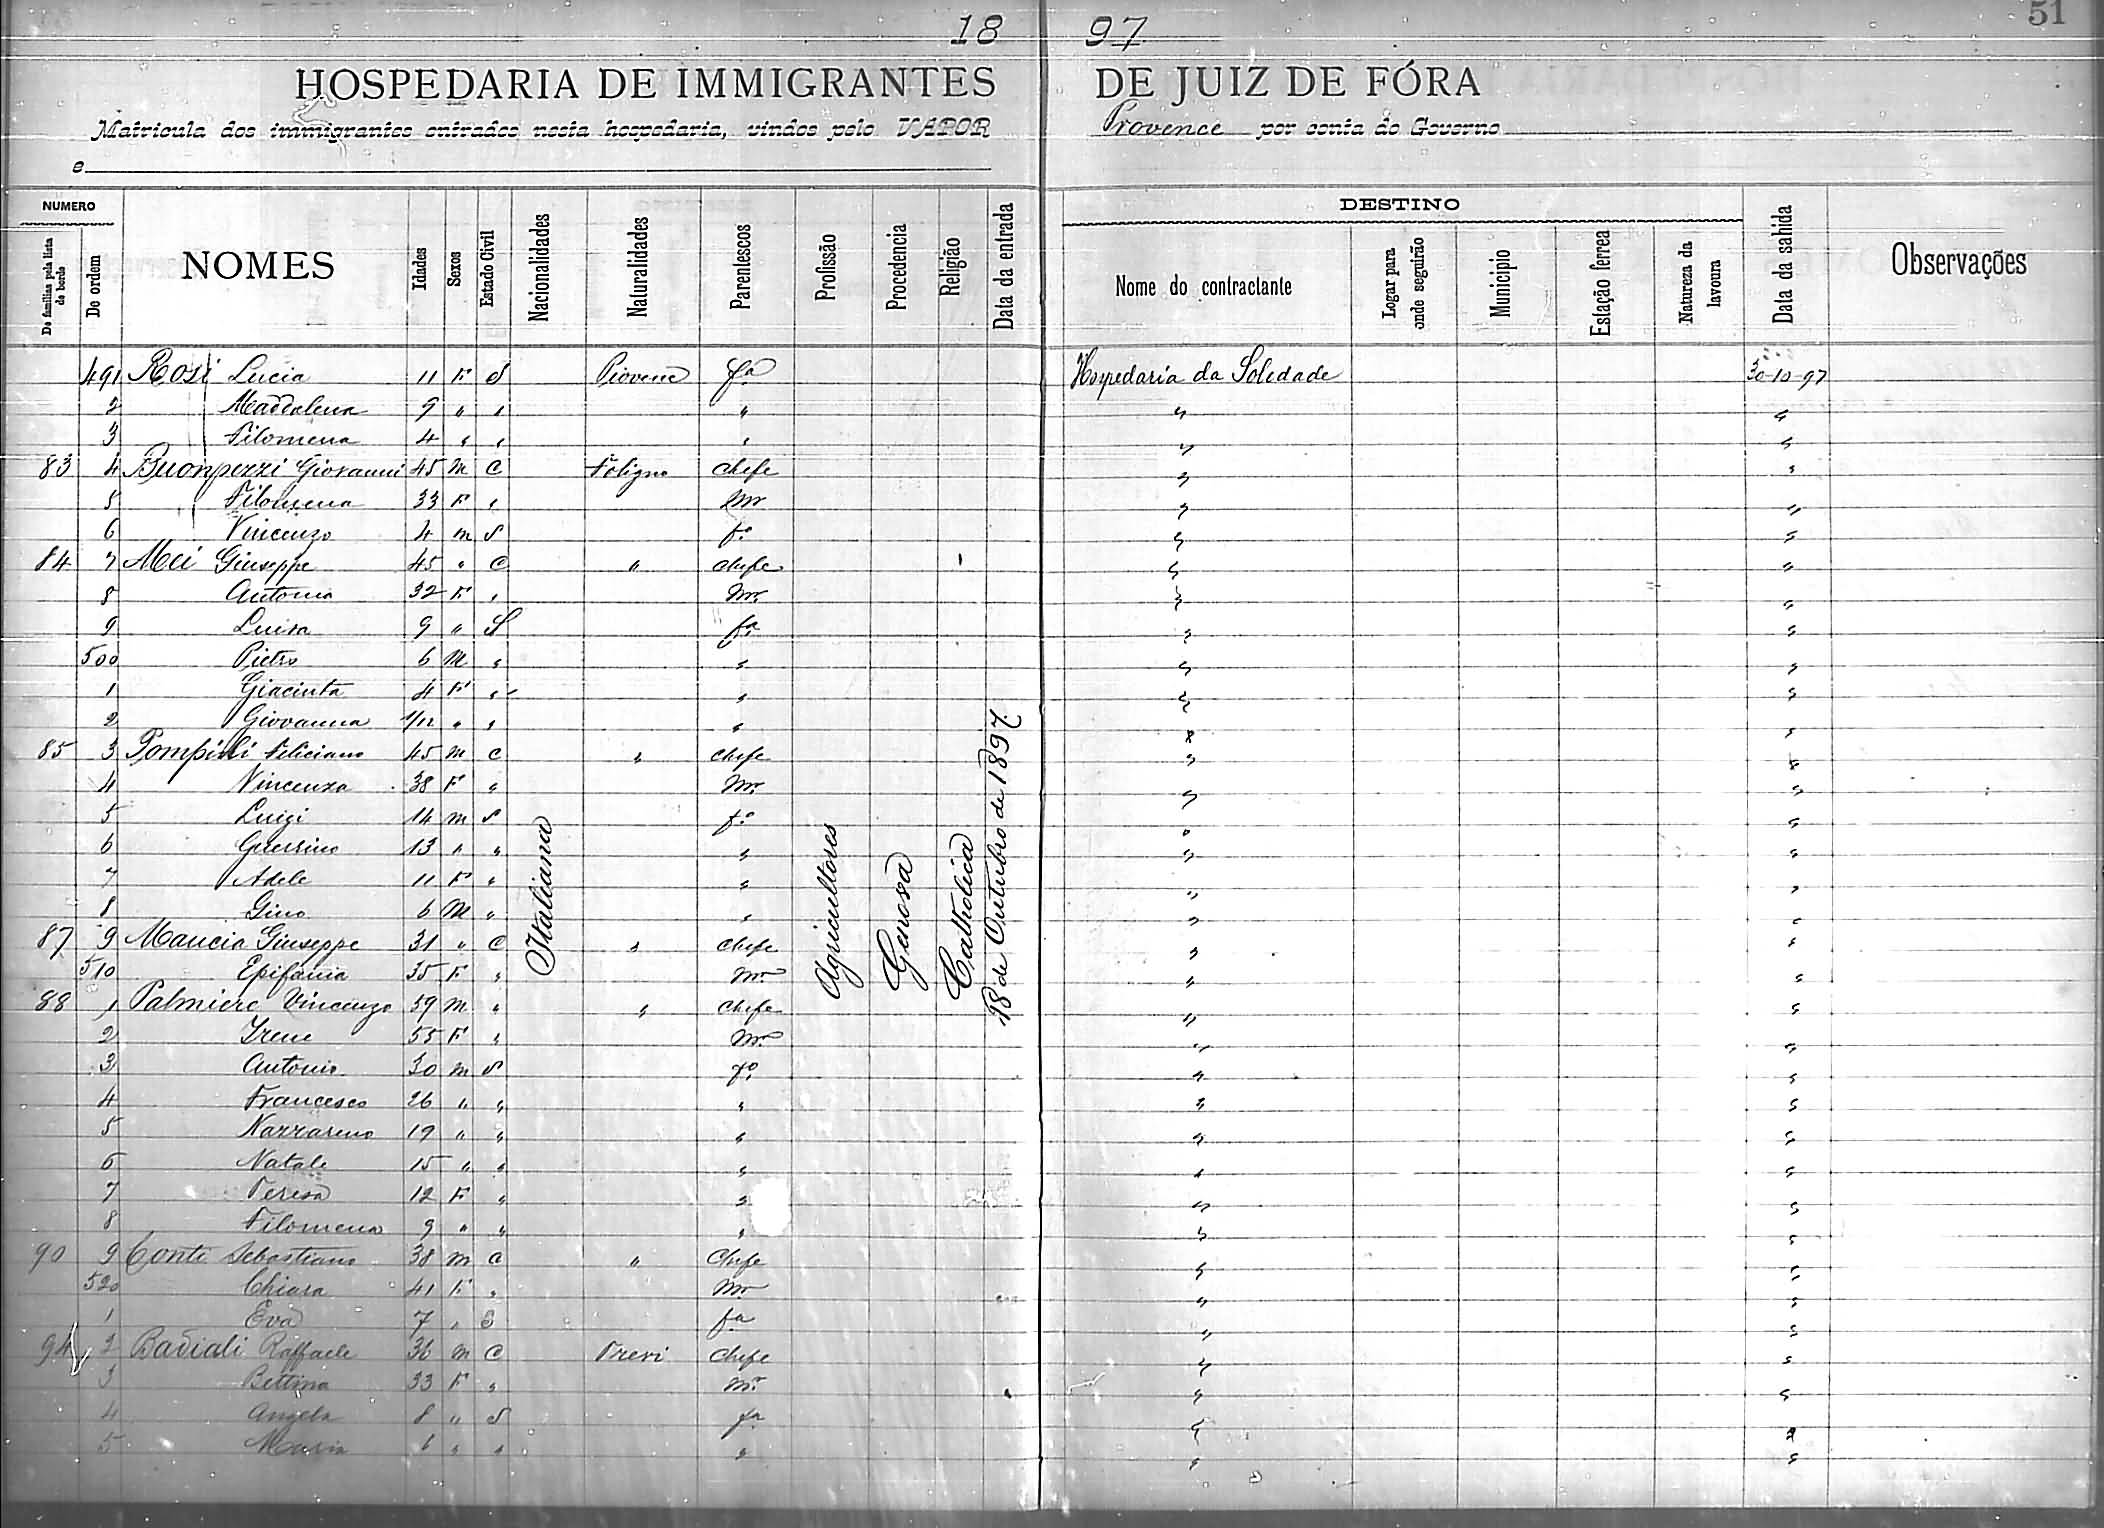 51
18 97
HOSPEDARIA DE IMMIGRANTES DE JUIZ DE FÓRA
Matricula dos immigrantes entrados nesta hospedaria, vindos pelo VAPOR Provence por conta do Governo
e
NUMERO
De familias pela lista de bordo
De ordem
NOMES
Idades
Sexos
Estado Civil
Nacionalidades
Naturalidades
Parentescos
Profissão
Procedencia
Religião
Data da entrada
DESTINO
Nome do contractante
Logar para onde seguirão
Municipio
Estação ferrea
Natureza da lavoura
Data da sahida
Observações
491 Rosi Lucia 11 F S Piovene fa Hospedaria da Soledade 30-10-97
2 Maddalena 9 " " " " "
3 Filomena 4 " " " " "
83 4 Buonpezzi Giovanni 45 M C Foligno Chefe " "
5 Filomena 33 F " Mr " "
6 Vincenzo 4 m S fo " "
84 7 Mei Giuseppe 45 " C " Chefe " "
8 Antonia 32 F " Mr " "
9 Luisa 9 " S fa " "
500 Pietro 6 M " " " "
1 Giacinta 4 F " " " "
2 Giovanna 1/12 " " " " "
85 3 Pompili Feliciano 45 M C " Chefe " "
4 Vincenza 38 F " Mr " "
5 Luigi 14 m S fo " "
6 Guerrino 13 " " " " "
7 Adele 11 F " " " "
8 Gino 6 M " " " "
87 9 Mancia Giuseppe 31 " C " Chefe " "
510 Epifania 35 F " Mr " "
88 1 Palmiere Vincenzo 59 M " " Chefe " "
2 Irene 55 F " Mr " "
3 Antonio 30 m S fo " "
4 Francesco 26 " " " " "
5 Nazzareno 19 " " " " "
6 Natale 15 " " " " "
7 Teresa 12 F " " " "
8 Filomena 9 " " " " "
90 9 Conti Sebastiano 38 m C " Chefe " "
520 Chiara 41 F " Mr " "
1 Eva 7 " S fa " "
94 2 Badiali Raffaele 36 m C Trevi Chefe " "
3 Bettina 33 F " Mr " "
4 Angela 8 " S fa " "
5 Maria 6 " " " " "
Italiana
Agricultores
Genova
Catholica
18 de Outubro de 1897